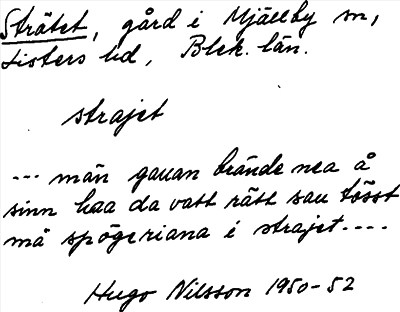 Strätet, gård i Mjällby sn,
Listers hd, Blek. län.
strajet
--- män gauan brände nea å
sinn haa da vatt rätt sau tösst
må spögeriana i strajet----
Hugo Nilsson 1950-52